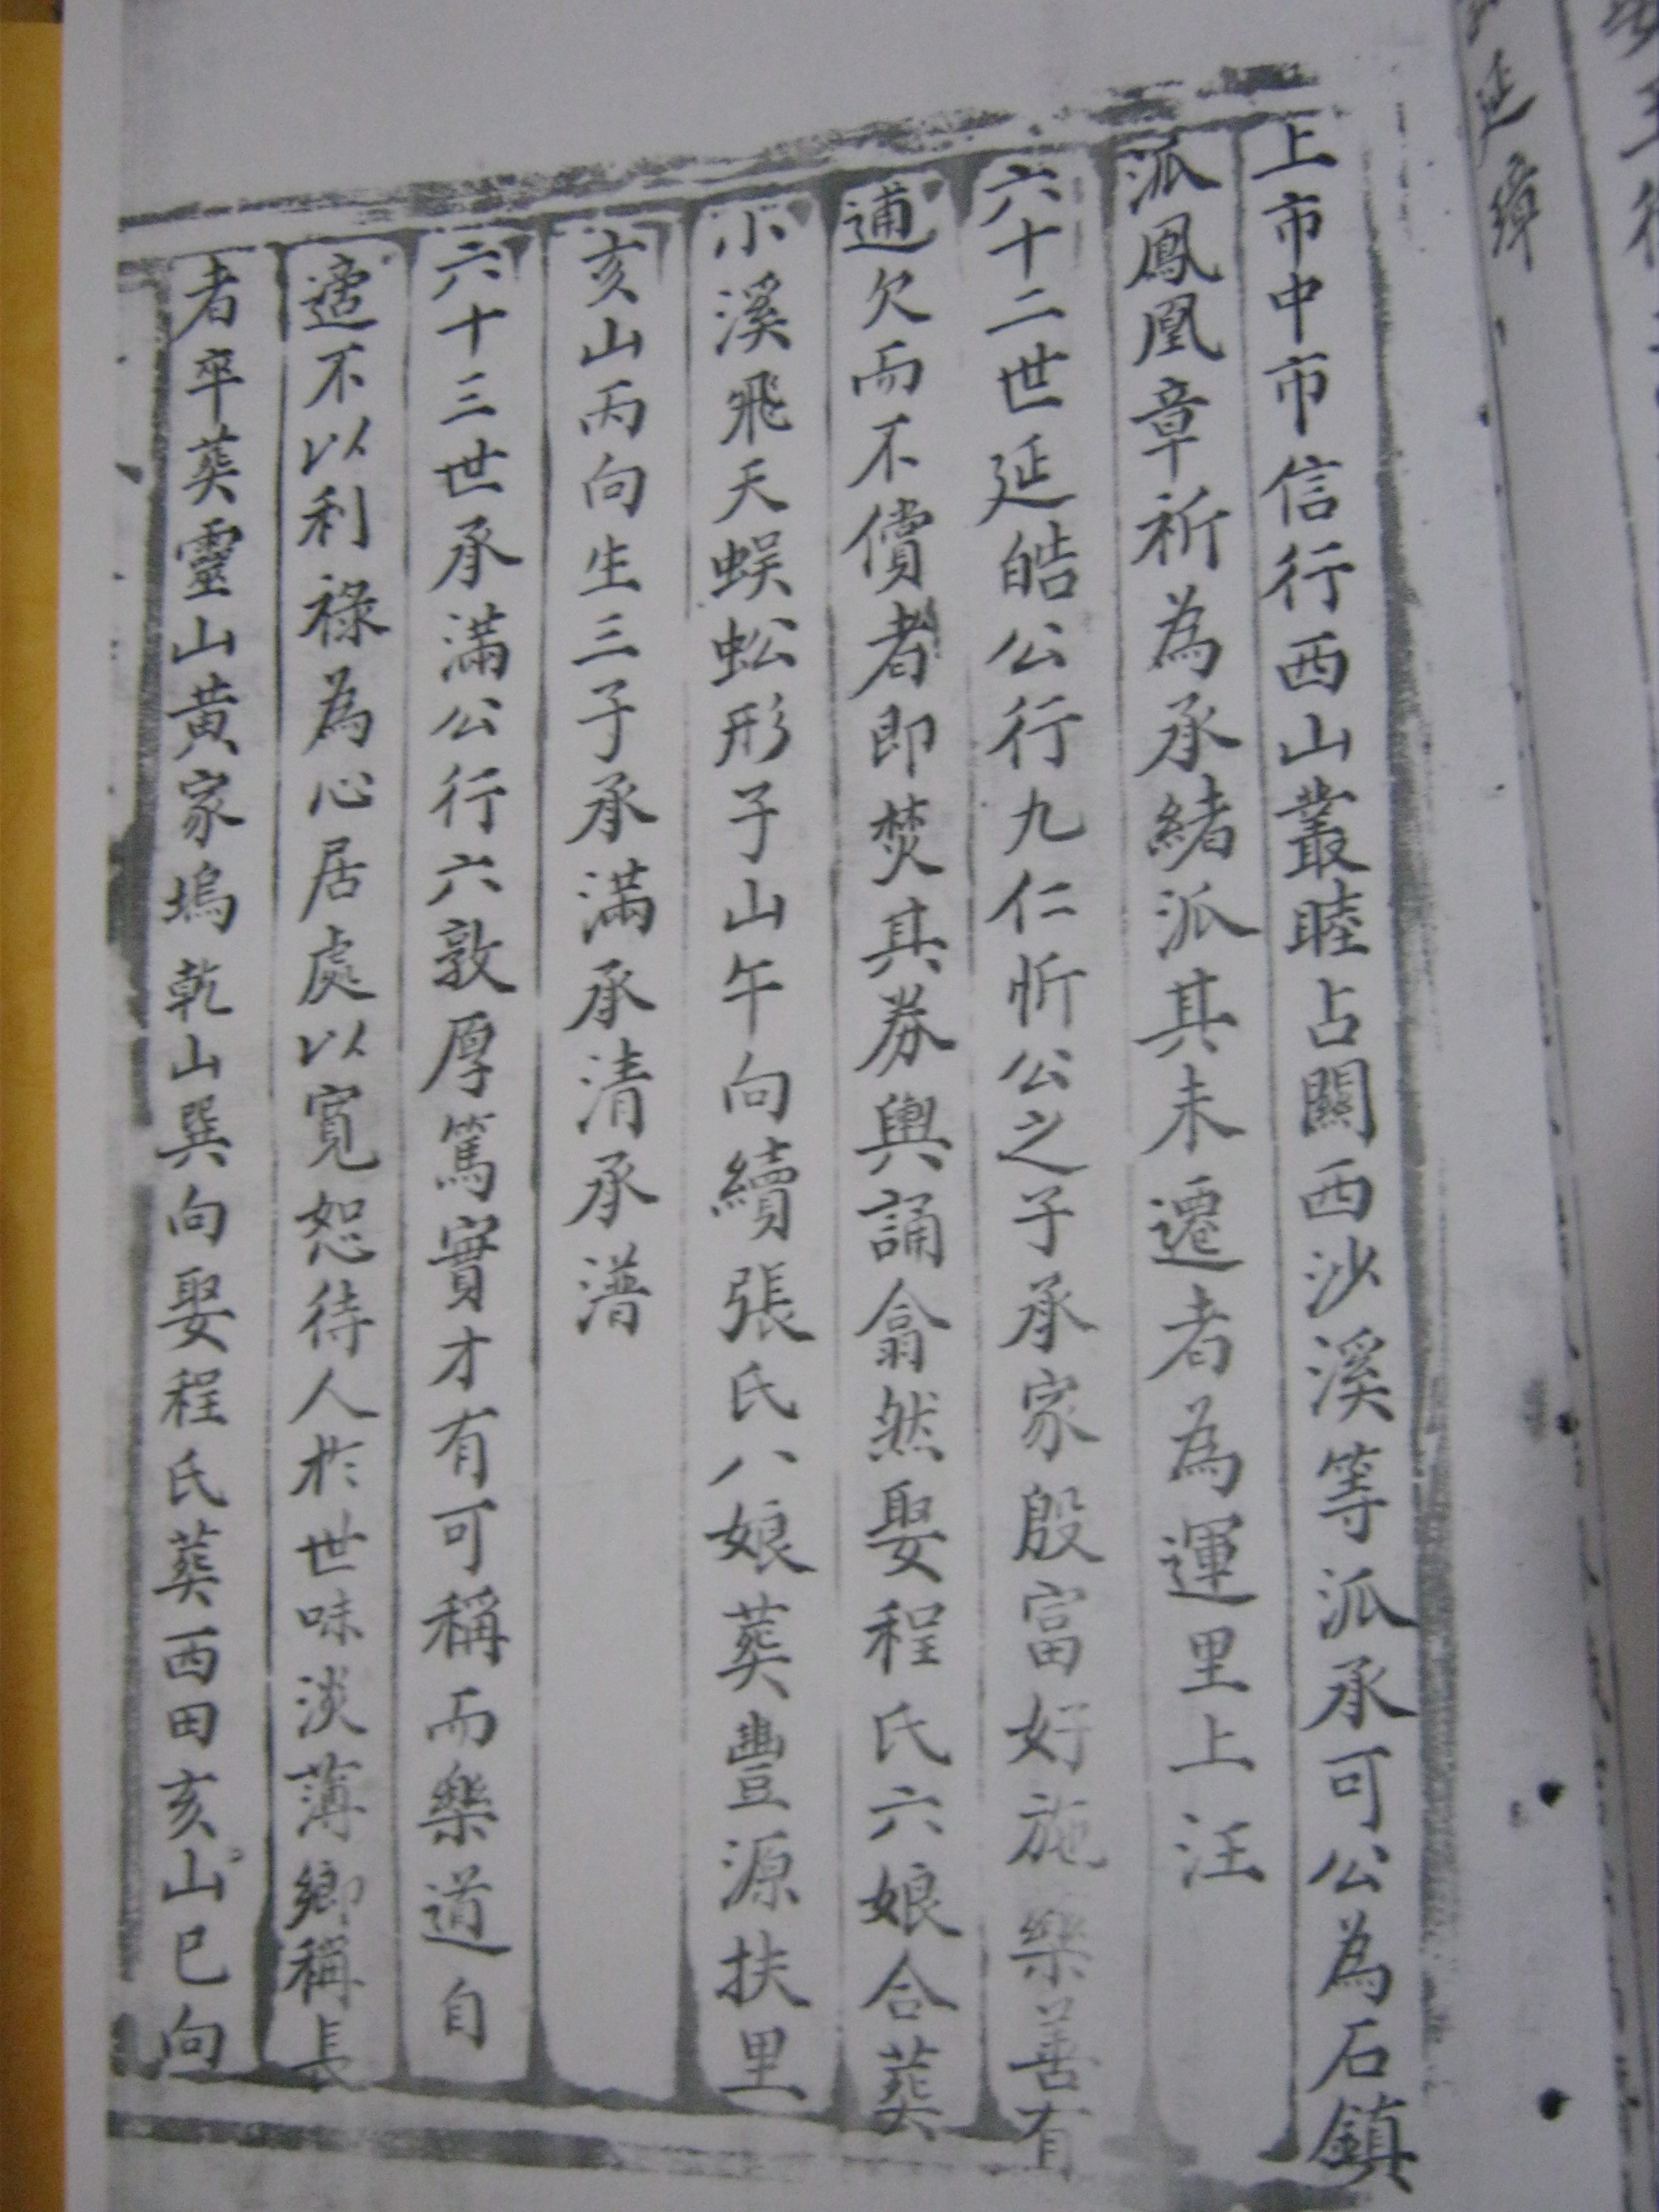 延璋
上市中市信行西山叢睦占關西沙溪等派承可公為石鎮
派鳳凰章祈為承緒派其未遷者為運里上汪
六十二世延皓公行九仁忻公之子承家殷富好施樂善有
逋欠而不償者即焚其券輿誦翕然娶程氏六娘合葬
小溪飛天蜈蚣形子山午向續張氏八娘葬豐源扶里
亥山丙向生三子承滿承清承潽
六十三世承滿公行六敦厚篤實才有可稱而樂道自
適不以利祿為心居處以寬恕待人於世味淡薄鄉稱長
者卒葬靈山黃家塢乾山巽向娶程氏葬西田亥山巳向